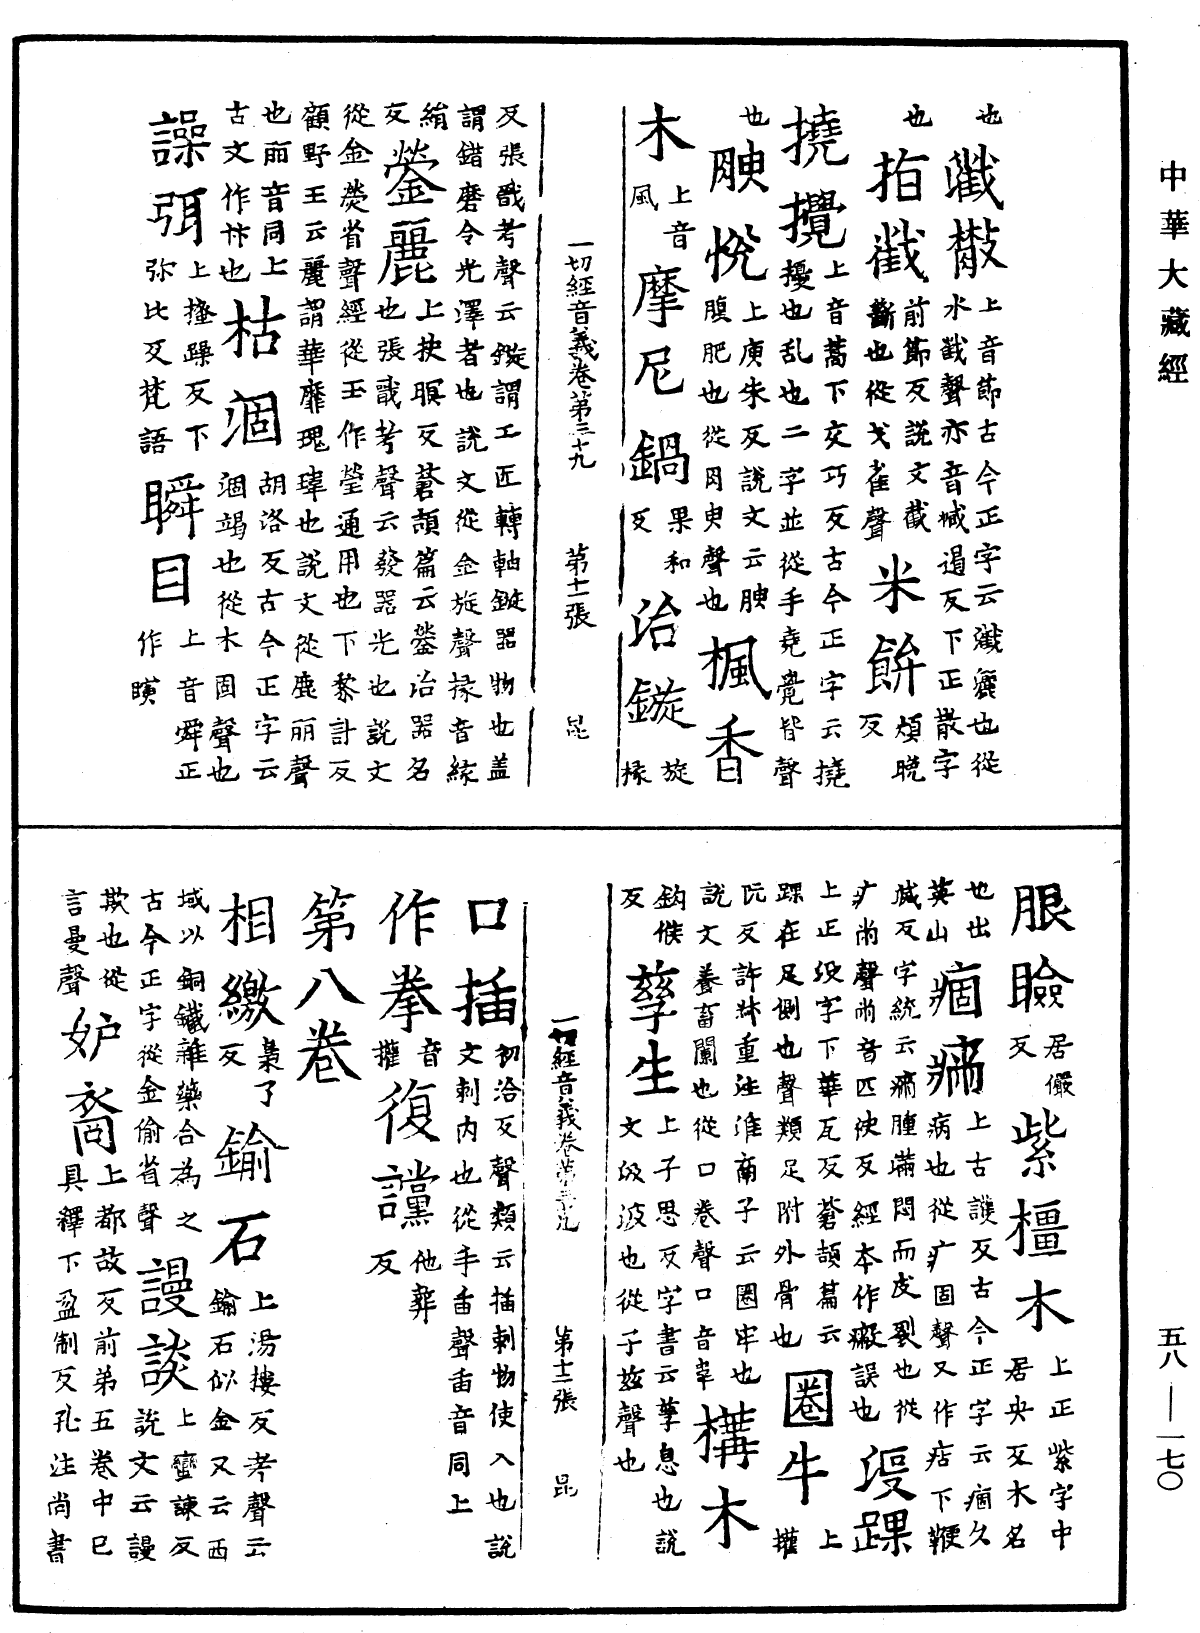 中華大藏經
五八—一七〇
也 濺㪚 上音節古今正字云濺灑也從水截聲亦音臧遏反下正散字
也 指截 前節反説文截斷也從戈雀聲 米䴵 煩晚反
撓攪 上音蒿下交巧反古今正字云撓擾也乱也二字並從手堯覺皆聲
也 腴悅 上庾朱反説文云腴腹肥也從肉臾聲也 楓香
木 上音風 摩尼鍋 果和反 冶鏇 旋椽
一切經音義卷第三十九 第十一張 昆
反張戩考聲云鏇謂工匠轉軸鏇器物也蓋
謂錯磨令光澤者也説文從金旋聲椽音緣
絹反 鎣麗 上抰暝反蒼頡篇云鎣治器名也張戩考聲云發器光也説文
從金熒省聲經從玉作瑩通用也下黎計反
顧野王云麗謂華靡瑰瑋也説文從鹿丽聲
也丽音同上古文作也 枯涸 胡洛反古今正字云涸竭也從水固聲也
譟弭 上搔躁反下弥比反梵語 瞬目 上音舜正作瞚
服瞼 居儼反 紫橿木 上正紫字中居央反木名
也出英山 痼㾓 上古護反古今正字云痼久病也從疒固聲又作㾶下鞭
滅反字統云㾓腫滿悶而皮裂也從
疒㡀聲㡀音匹反經本作誤也 踝
上正字下華瓦反蒼頡篇云
踝在足側也聲類足附外骨也 圈牛 上㩲
阮反許叔重注淮南子云圈牢也
説文養畜闌也從口卷聲口音韋 構木
鈎候反 孳生 上子思反字書云孳息也説文汲汲也從子茲聲也
一切經音義卷第三十九 第十二張 昆
口插 初洽反聲類云插刺物使入也説文刺内也從手臿聲臿音同上
作拳 音權 復讜 他莽反
第八卷
相繳 梟了反 鍮石 上湯摟反考聲云鍮石似金又云西
域以銅鐵雜藥合為之
古今正字從金偷省聲 謾談 上蠻諫反説文云謾
欺也從言曼聲 妒裔 上都故反前弟五卷中已具釋下盈制反孔注尚書